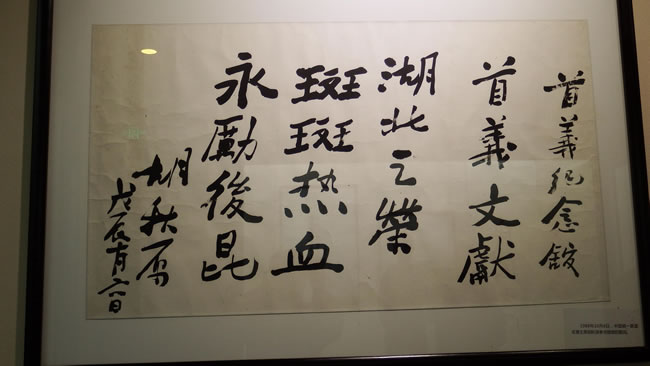 首義紀念館
首義文獻
湖北之榮
斑斑热血
永勵後昆
胡秋原
戊辰